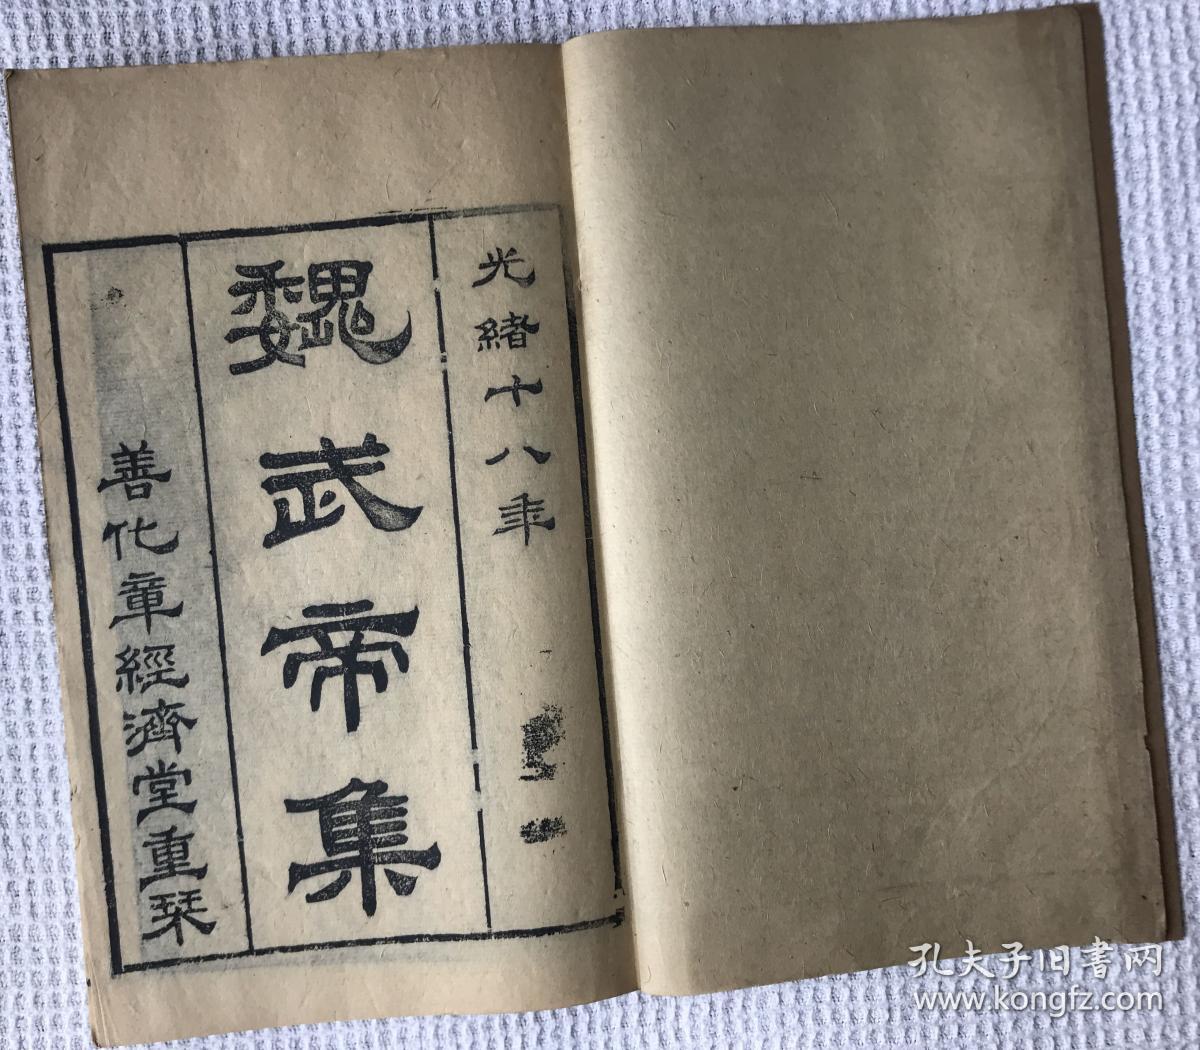 光緒十八年
魏武帝集
善化章經濟堂重栞
孔夫子旧書网
www.kongfz.com